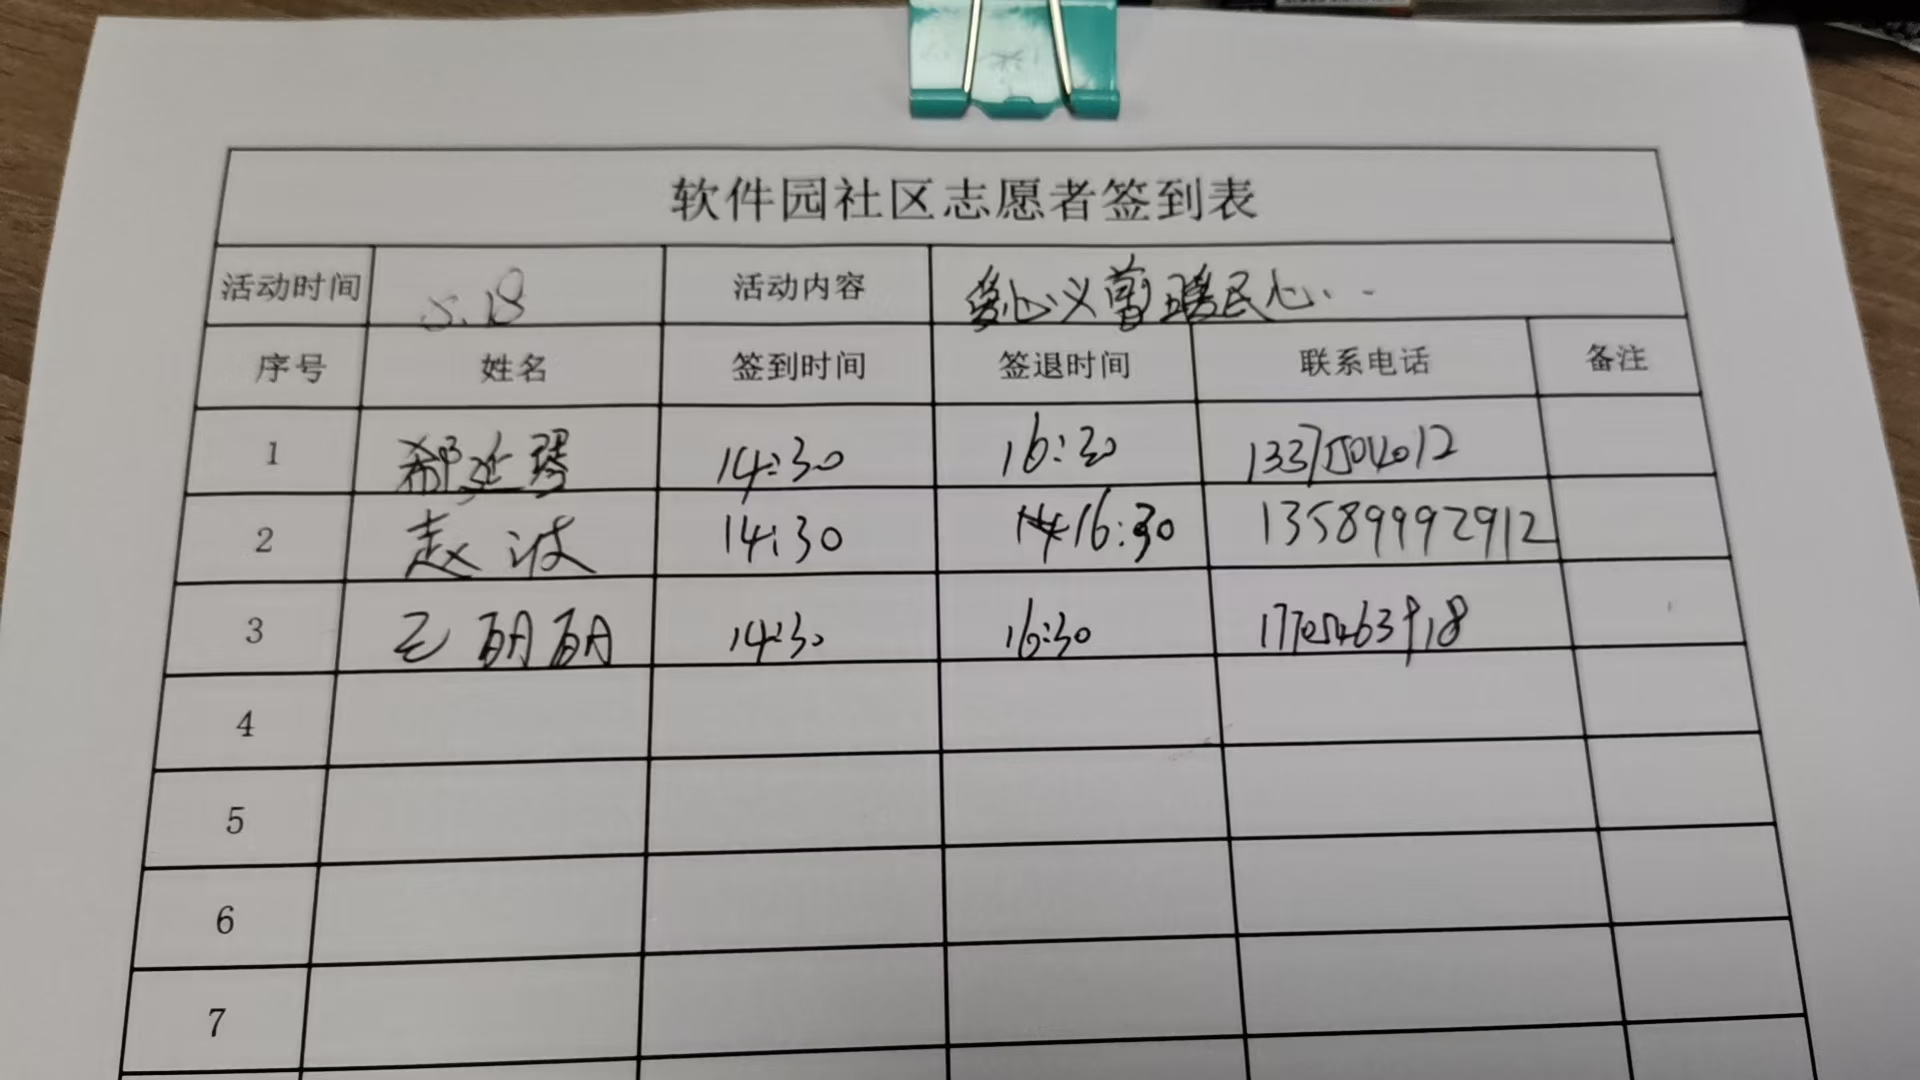 软件园社区志愿者签到表
活动时间 5.18 活动内容 爱心义剪暖民心...
序号 姓名 签到时间 签退时间 联系电话 备注
1 郗延琴 14:30 16:30
2 赵波 14:30 16:30 13589992912
3 王丽丽 14:30 16:30
4
5
6
7